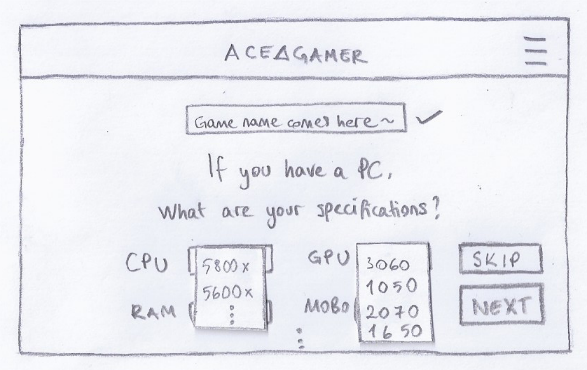 ACE∆GAMER
Game name comes here ~
If you have a PC,
What are your specifications?
CPU
5800x
5600x
RAM
GPU
3060
1050
2070
1650
MOBO
SKIP
NEXT